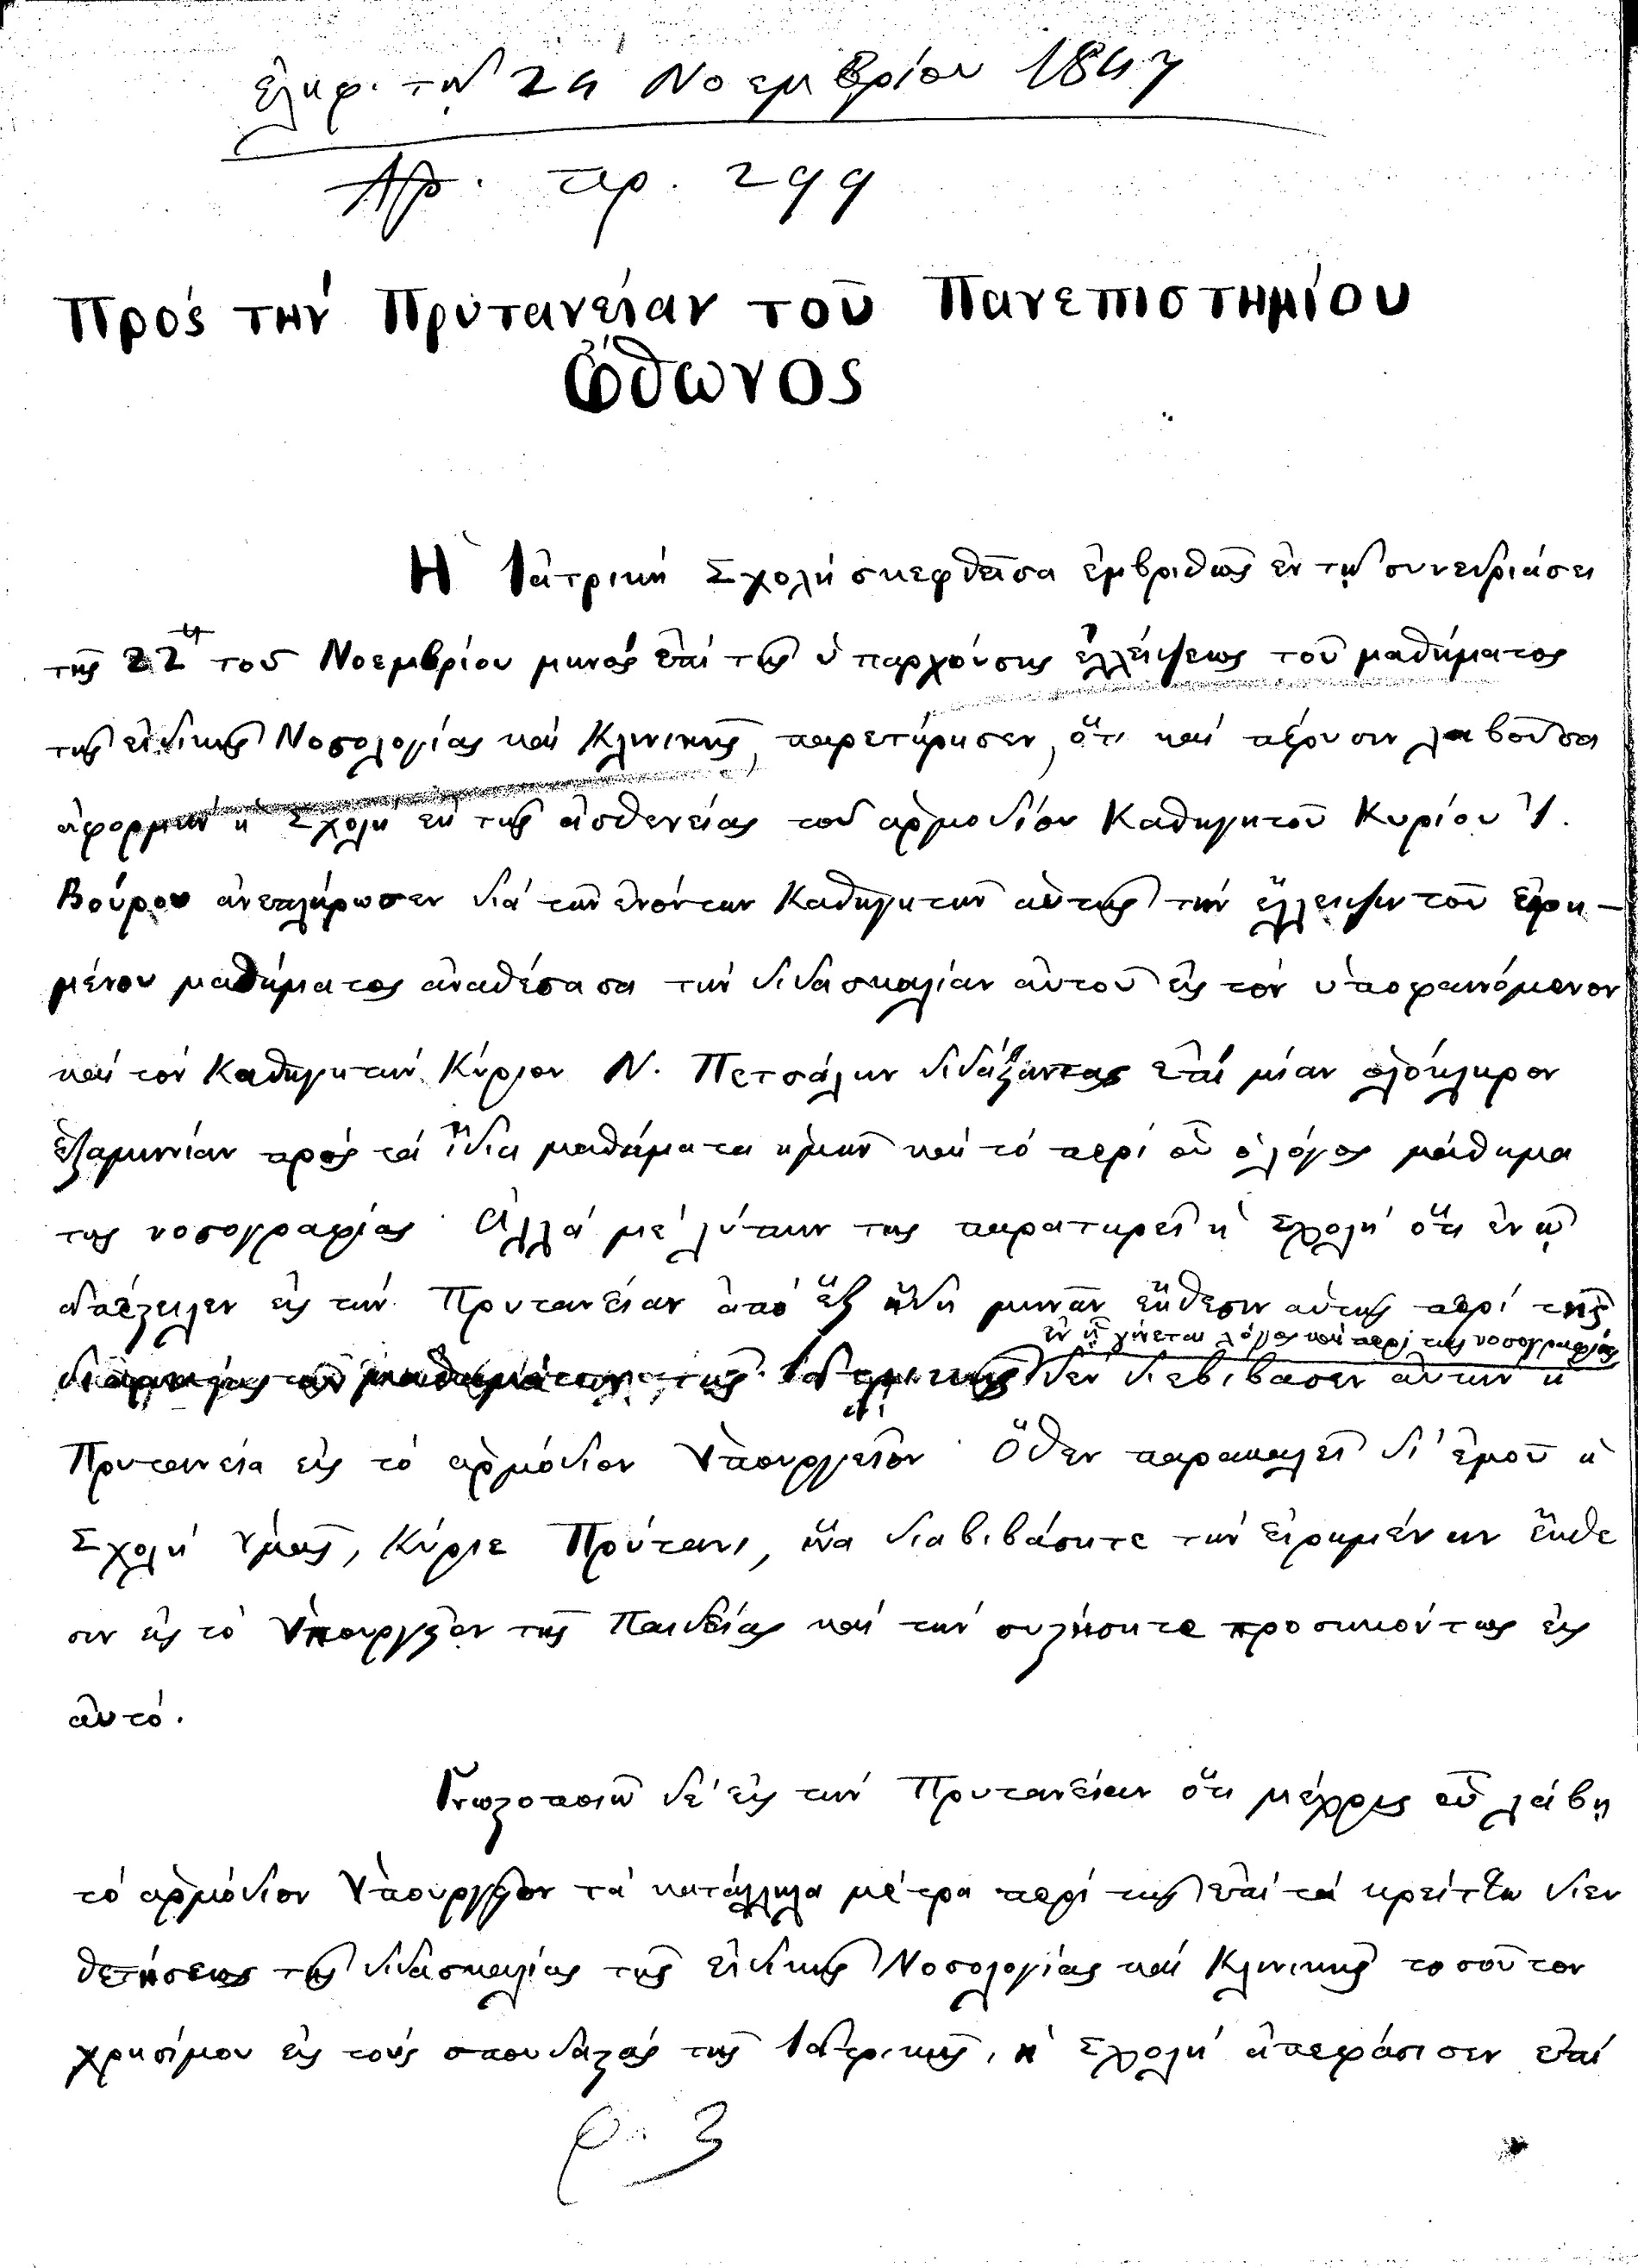 ἐλήφ. τῇ 24 Νοεμβρίου 1847
Ἀρ. πρ. 299
Πρός τήν Πρυτανείαν τοῦ Πανεπιστημίου
Ὄθωνος
Ἡ Ἰατρική Σχολή σκεφθεῖσα ἐμβριθῶς ἐν τῇ συνεδριάσει
τῆς 22 τοῦ Νοεμβρίου μηνός ἐπί τῆς ὑπαρχούσης ἐλλείψεως τοῦ μαθήματος
τῆς εἰδικῆς Νοσολογίας καί Κλινικῆς, παρετήρησεν, ὅτι καί πέρυσιν λαβοῦσα
ἀφορμήν ἡ Σχολή ἐκ τῆς ἀσθενείας τοῦ ἁρμοδίου Καθηγητοῦ Κυρίου Ἰ.
Βούρου ἀνεπλήρωσεν διά τῶν ἐνόντων Καθηγητῶν αὐτῆς τήν ἔλλειψιν τοῦ εἰρη-
μένου μαθήματος ἀναθέσασα τήν διδασκαλίαν αὐτοῦ εἰς τόν ὑποφαινόμενον
καί τόν Καθηγητήν Κύριον Ν. Πετσάλην διδάξαντας ἐπί μίαν ὁλόκληρον
ἑξαμηνίαν πρός τά ἴδια μαθήματα ἡμῶν καί τό περί οὗ ὁ λόγος μάθημα
τῆς νοσογραφίας. Ἀλλά μέ λύπην της παρατηρεῖ ἡ Σχολή ὅτι ἐν ᾧ
ἀπέστειλεν εἰς τήν Πρυτανείαν ἀπό ἕξ ἤδη μηνῶν ἔκθεσιν αὐτῆς περί τῆς
ἐν ᾗ γίνεται λόγος καί περί τῆς νοσογραφίας
τῶν μαθημάτων τῆς Ἰατρικῆς δέν διεβίβασεν αὐτήν ἡ
Πρυτανεία εἰς τό ἁρμόδιον Ὑπουργεῖον. Ὅθεν παρακαλεῖ δι' ἐμοῦ ἡ
Σχολή Ὑμᾶς, Κύριε Πρύτανι, ἵνα διαβιβάσητε τήν εἰρημένην ἔκθε
σιν εἰς τό Ὑπουργεῖον τῆς Παιδείας καί τήν συστήσητε προσηκόντως εἰς
αὐτό.
Γνωστοποιῶ δέ εἰς τήν Πρυτανείαν ὅτι μέχρις οὗ λάβῃ
τό ἁρμόδιον Ὑπουργεῖον τά κατάλληλα μέτρα περί τῆς ἐπί τά κρείττω διευ
θετήσεως τῆς διδασκαλίας τῆς εἰδικῆς Νοσολογίας καί Κλινικῆς τοσοῦτον
χρησίμου εἰς τούς σπουδαστάς τῆς Ἰατρικῆς, ἡ Σχολή ἀπεφάσισεν ἐπί